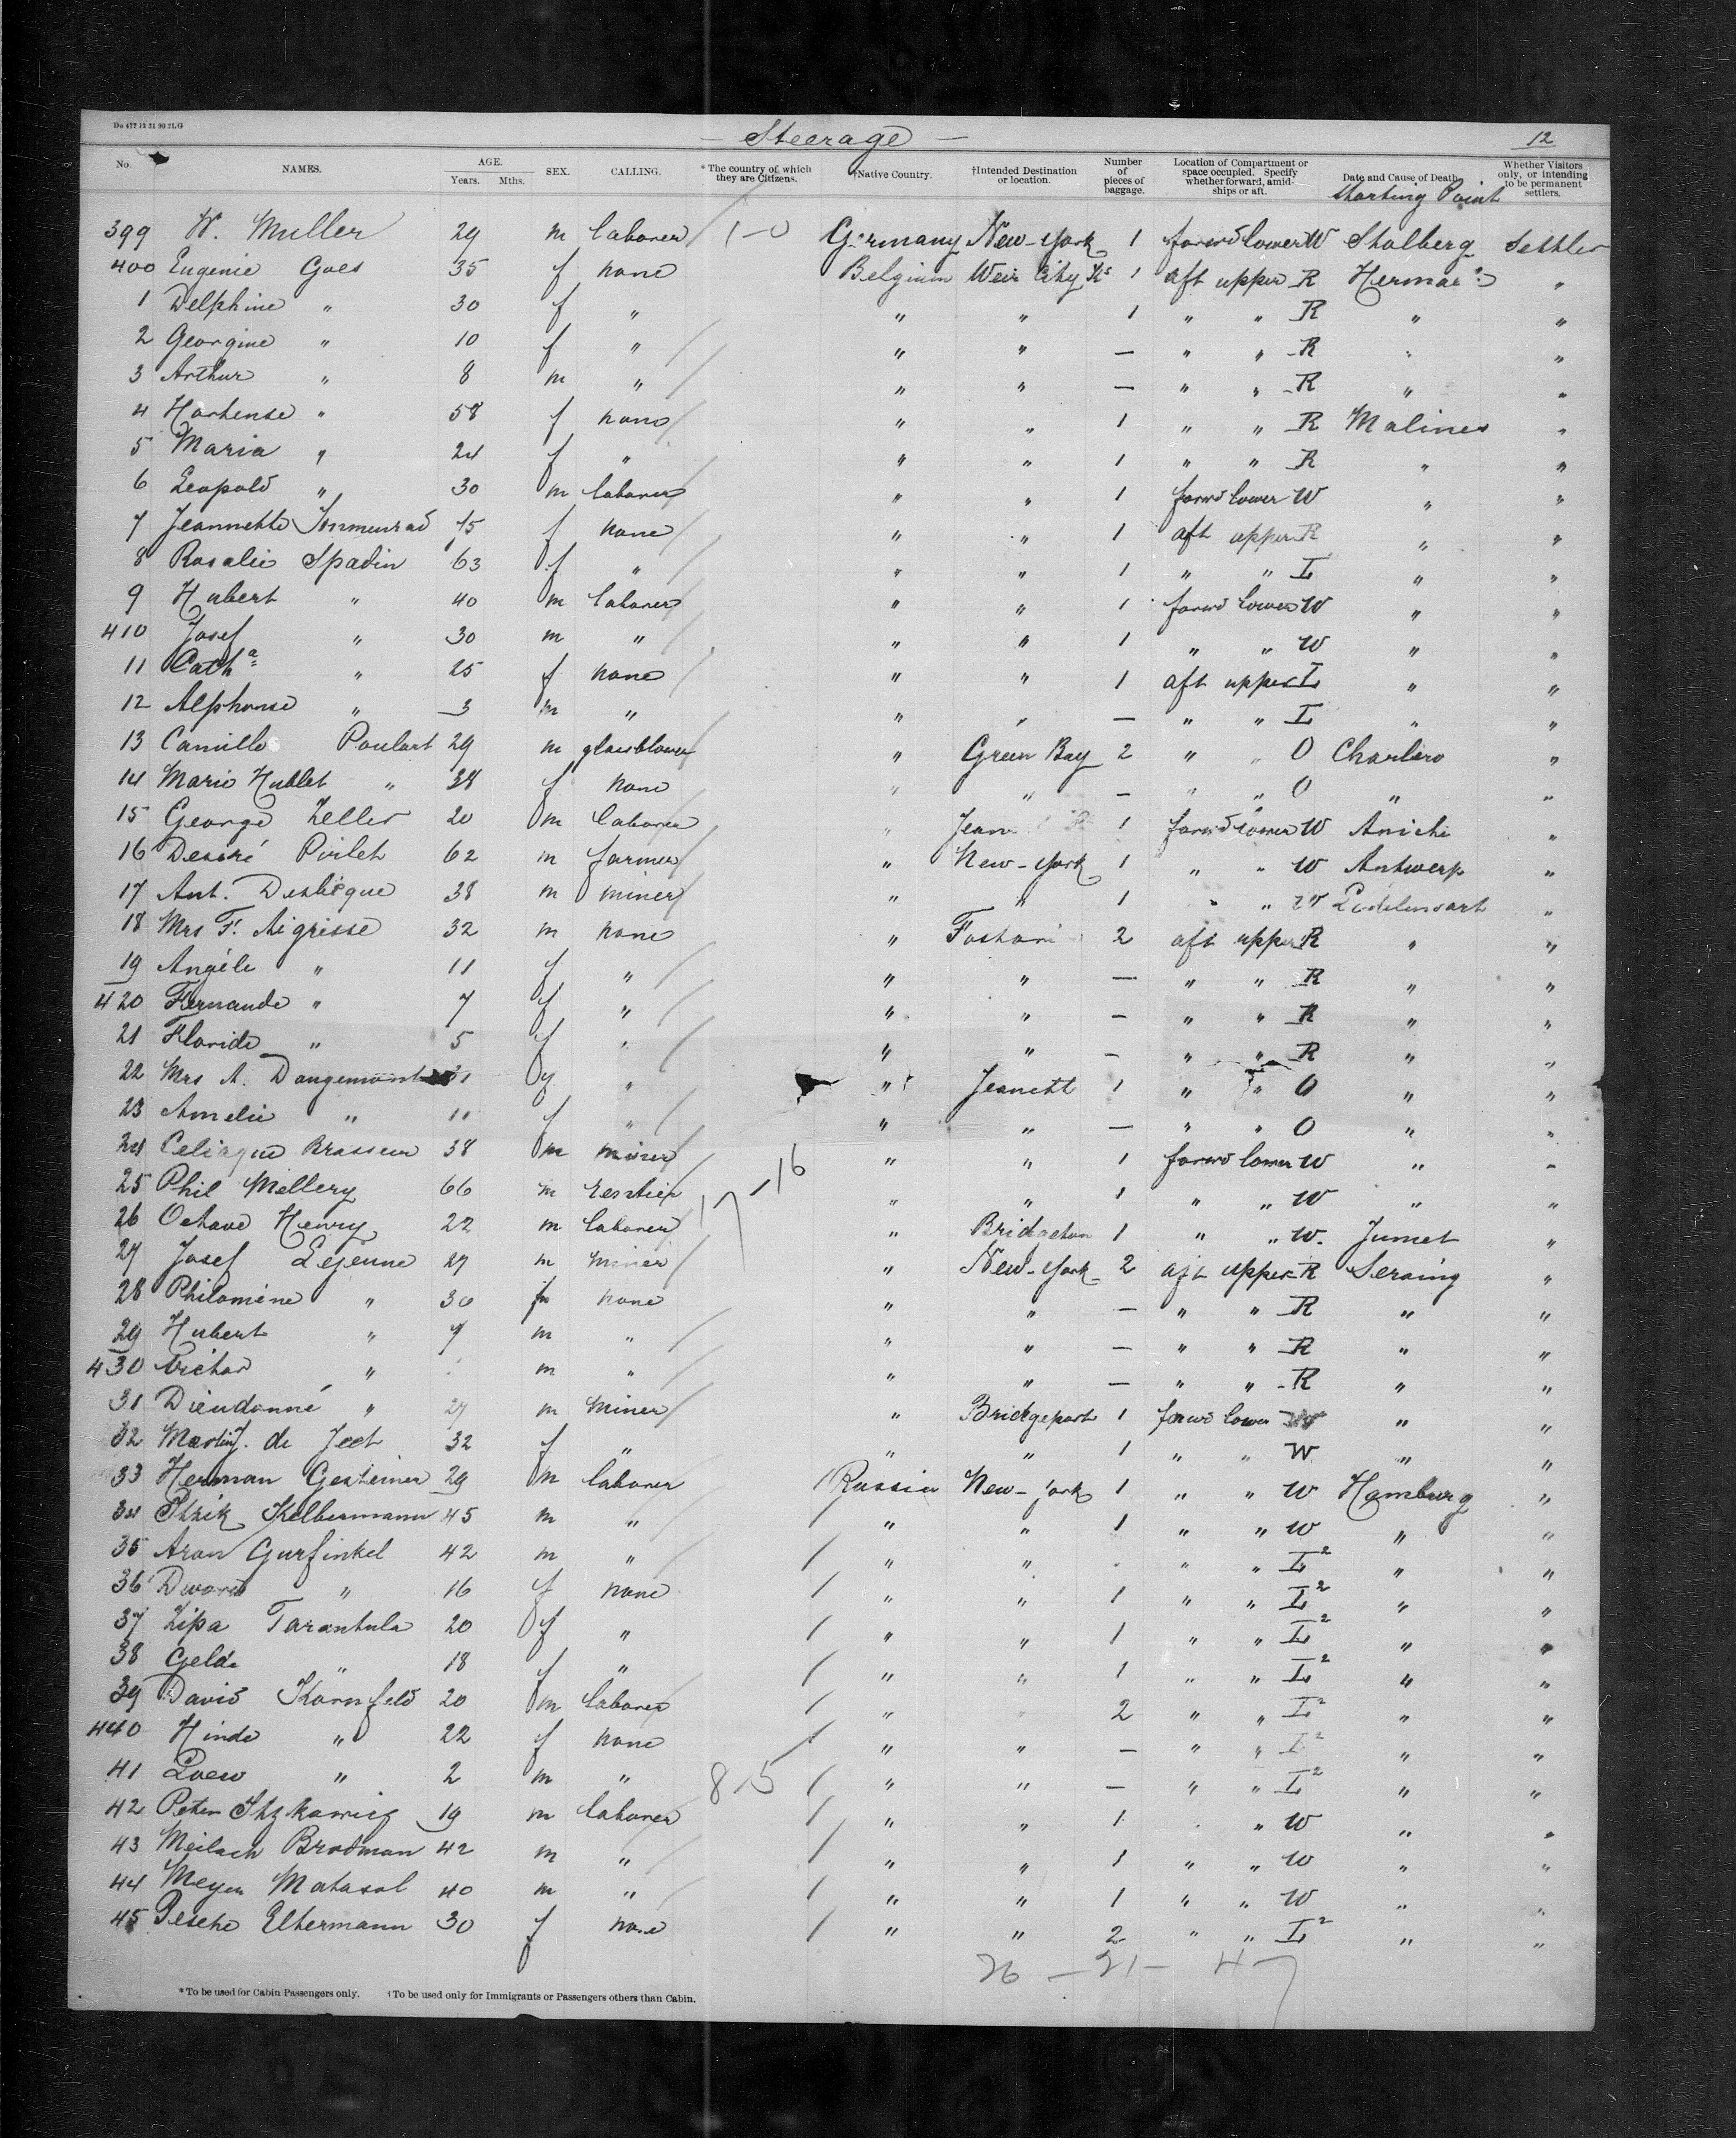 Do 477 13 31 90 2LG
— Steerage —
12
No. NAMES. AGE. Years. Mths. SEX. CALLING. * The country of which they are Citizens. †Native Country. †Intended Destination or location. Number of pieces of baggage. Location of Compartment or space occupied. Specify whether forward, amidships or aft. Date and Cause of Death. Whether Visitors only, or intending to be permanent settlers.
Starting Point
399 W. Muller 29 m laborer 1-0 Germany New-York 1 forwd lower W Stolberg Settler
400 Eugenie Goes 35 f none Belgium Weir City Ks 1 aft upper R "
1 Delphine " 30 f " " " 1 " " R " "
2 Georgine " 10 f " " " — " " R " "
3 Arthur " 8 m " " " — " " R " "
4 Hortense " 58 f none " " 1 " " R Malines "
5 Maria " 24 f " " " 1 " " R " "
6 Leopold " 30 m laborer " " 1 forwd lower W " "
7 Jeannette 15 f none " " 1 aft upper R " "
8 Rosalie Spadin 63 f " " " 1 " " L " "
9 Hubert " 40 m laborer " " 1 forwd lower W " "
410 Josef " 30 m " " " 1 " " W " "
11 Catha " 25 f none " " 1 aft upper L " "
12 Alphonse " 3 m " " " — " " L " "
13 Camille Poulart 29 m glassblower " Green Bay 2 " " O Charlero "
14 Marie Hublet " 38 f none " " — " " O " "
15 George Zeller 20 m laborer " Jean 1 forwd lower W Anichi "
16 Desiré Pirlet 62 m farmer " New-York 1 " " W Antwerp "
17 Ant. 38 m miner " " 1 " " W "
18 Mrs F. Aigrisse 32 m none " Fostori 2 aft upper R " "
19 Angéle " 11 f " " " — " " R " "
420 Fernande " 7 f " " " — " " R " "
21 Floride " 5 f " " " — " " R " "
22 Mrs A. Dangemont 31 f " " Jeanett 1 " " O " "
23 Amelie " 11 f " " " — " " O " "
24 Brasseur 38 m miner " " 1 forwd lower W " "
25 Phil Mellery 66 m 17-16 " " 1 " " W " "
26 Octave Henry 22 m laborer " Bridgeton 1 " " W. Jumet "
27 Josef Lejeune 27 m miner " New-York 2 aft upper R Seraing "
28 Philoméne " 30 f none " " — " " R " "
29 Hubert " 7 m " " " — " " R " "
430 Victor " m " " " — " " R " "
31 Dieudonné " 27 m miner " Bridgeport 1 forwd lower W " "
32 de 32 f " " " 1 " " W " "
33 Herman Gesteiner 29 m laborer 1 Russia New-York 1 " " W Hamburg "
34 Kelbermann 45 m " / " " 1 " " W " "
35 Aron Gurfinkel 42 m " / " " " " L2 " "
36 " 16 f none / " " 1 " " L2 " "
37 Zipa Tarantula 20 f " / " " 1 " " L2 " "
38 Gelda " 18 f " / " " 1 " " L2 " "
39 David Kornfeld 20 m laborer / " " 2 " " L2 " "
440 Hinde " 22 f none / " " — " " L2 " "
41 " 2 m " 8-5 / " " — " " L2 " "
42 Peter 19 m laborer / " " 1 " " W " "
43 Meilach Brodman 42 m " / " " 1 " " W " "
44 Meyer Matasol 40 m " / " " 1 " " W " "
45 Pesche Eltermann 30 f none / " " 2 " " L2 " "
26 — 21 — 47
* To be used for Cabin Passengers only. †To be used only for Immigrants or Passengers others than Cabin.